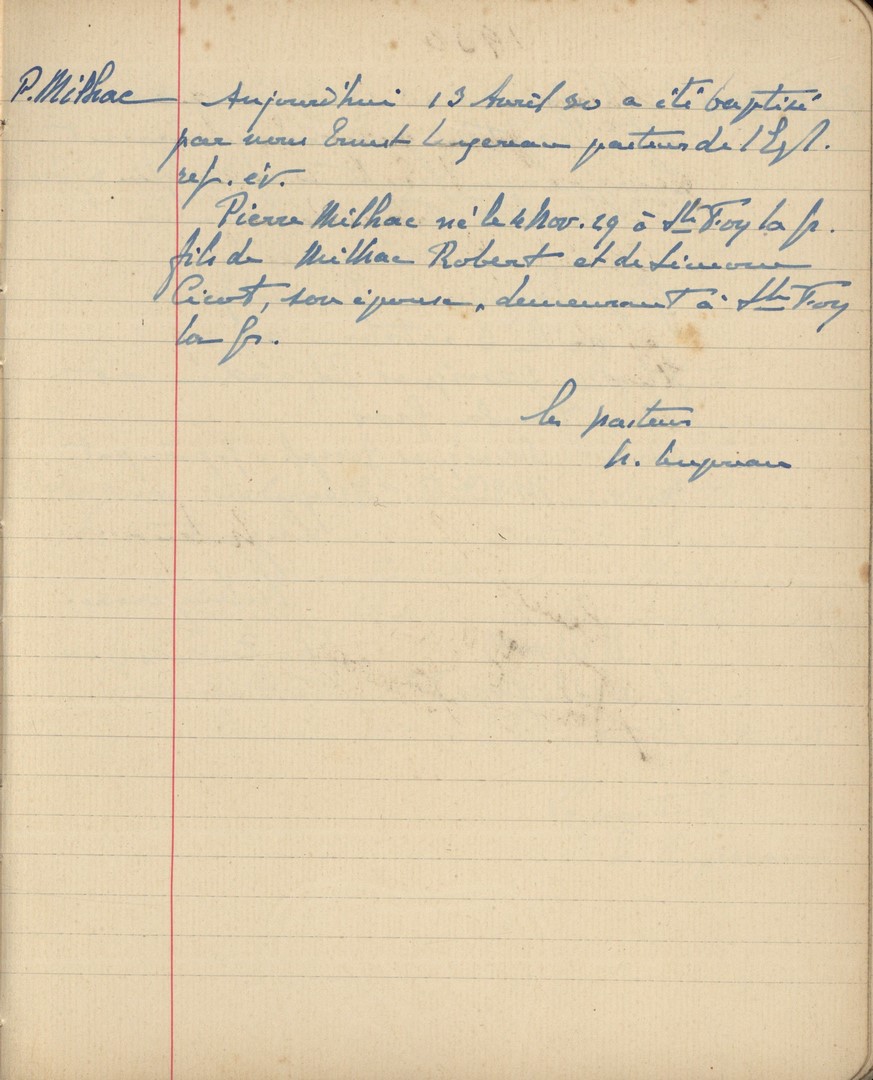 P. Milhac Aujourd'hui 13 Avril 30 a été baptisé
par nous Ernest pasteur de l'Egl.
réf. év.
Pierre Milhac né le 4 Nov. 29 à Ste Foy la gr.
fils de Milhac Robert et de Simone
Cicot, son épouse, demeurant à Ste Foy
la gr.
les pasteurs